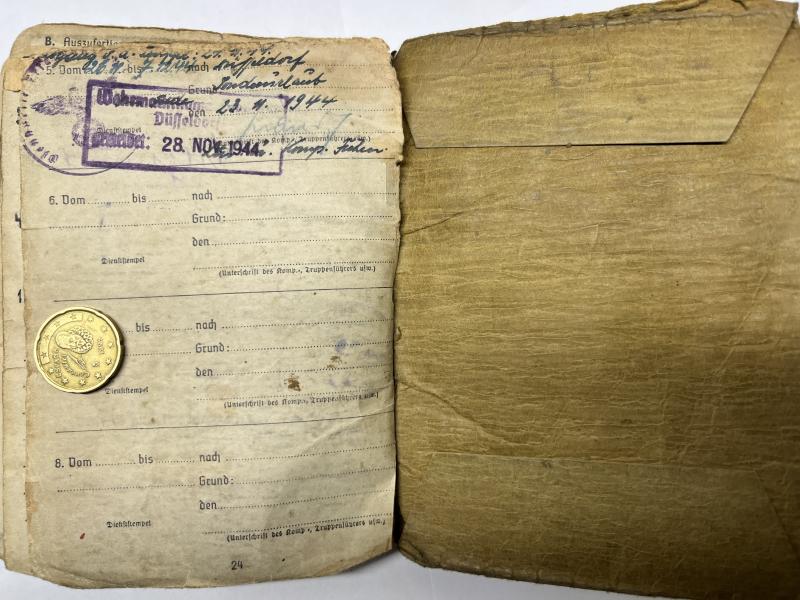 B. Auszufertig
5. Vom 26.11. bis 7.12.44 nach Düsseldorf
Grund: Sonderurlaub
den 23. 11. 1944
Wehrmacht
Düsseldorf
Gemeldet: 28. NOV. 1944
Dienststempel
Komp., Truppenführers usw.)
6. Vom bis nach
Grund:
den
Dienststempel
(Unterschrift des Komp., Truppenführers usw.)
bis nach
Grund:
den
Dienststempel
(Unterschrift des Komp., Truppenführers usw.)
8. Vom bis nach
Grund:
den
Dienststempel
(Unterschrift des Komp., Truppenführers usw.)
24